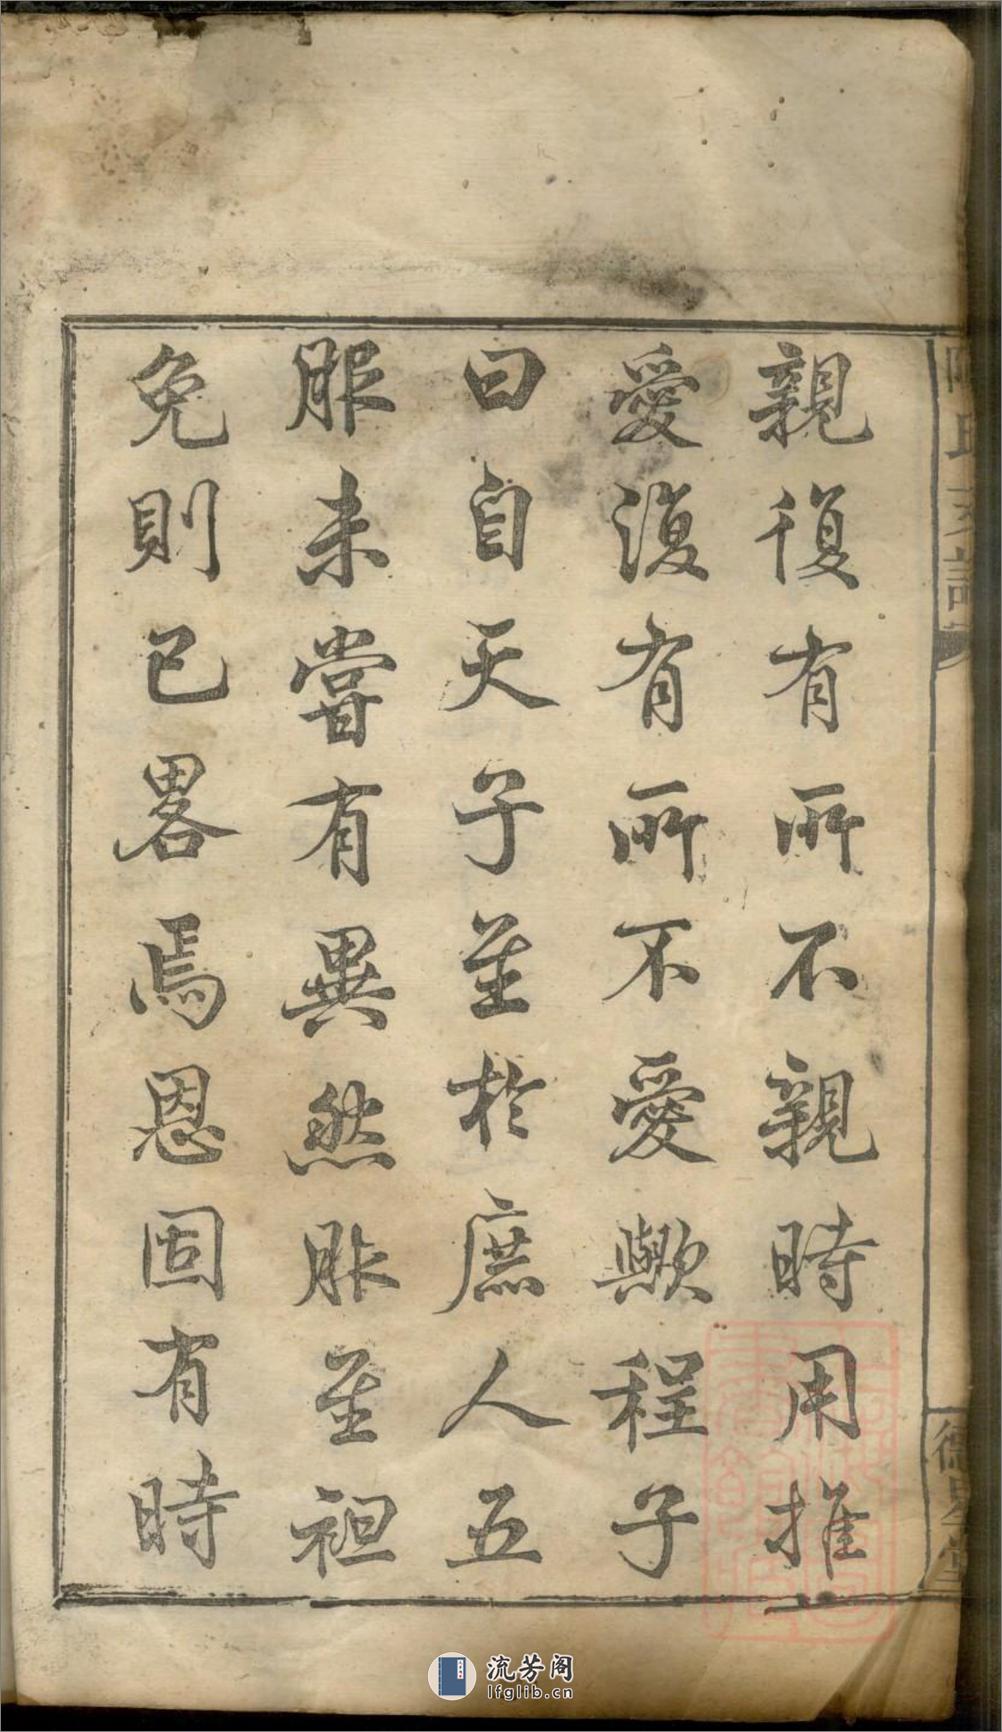 親復有所不親時用推
愛復有所不愛歟程子
曰自天子至於庶人五
服未嘗有異然服至袒
免則已畧焉恩固有時
流芳阁
lfglib.cn